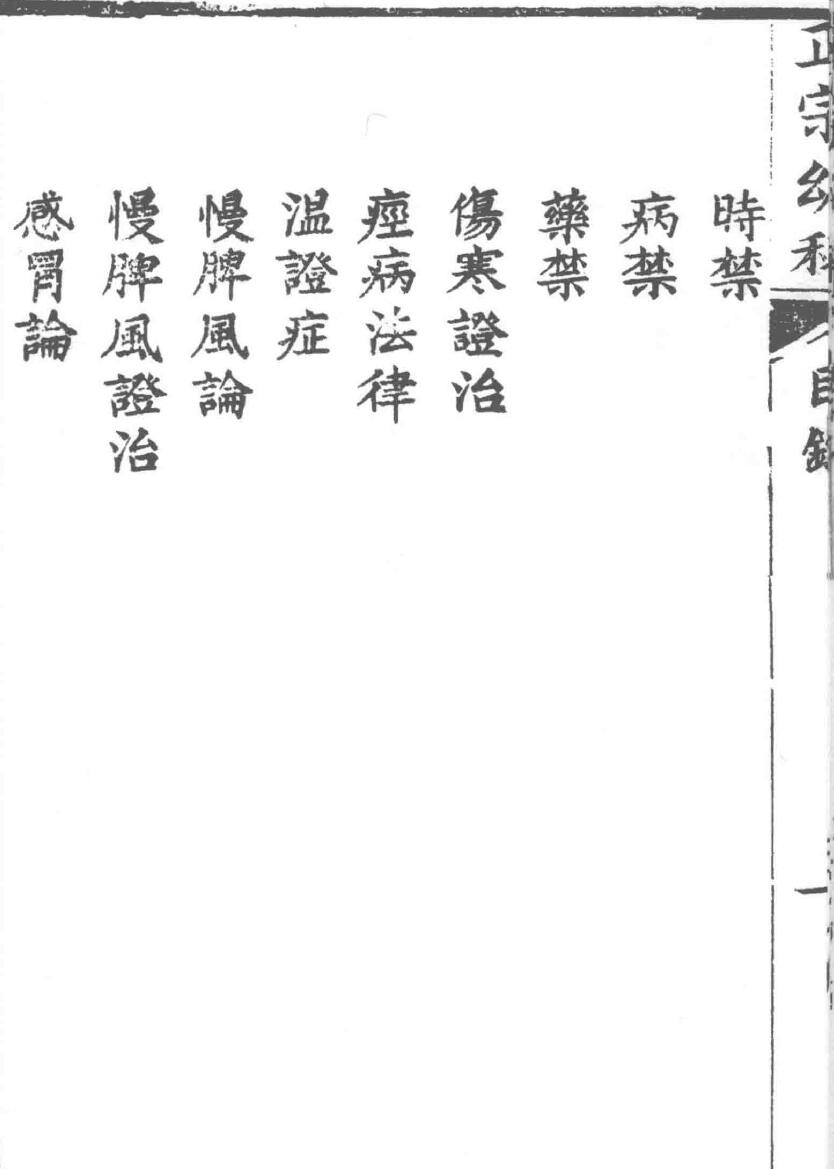 正宗幼科
目錄
一
時禁
病禁
藥禁
傷寒證治
痙病法律
温證症
慢脾風論
慢脾風證治
感冐論